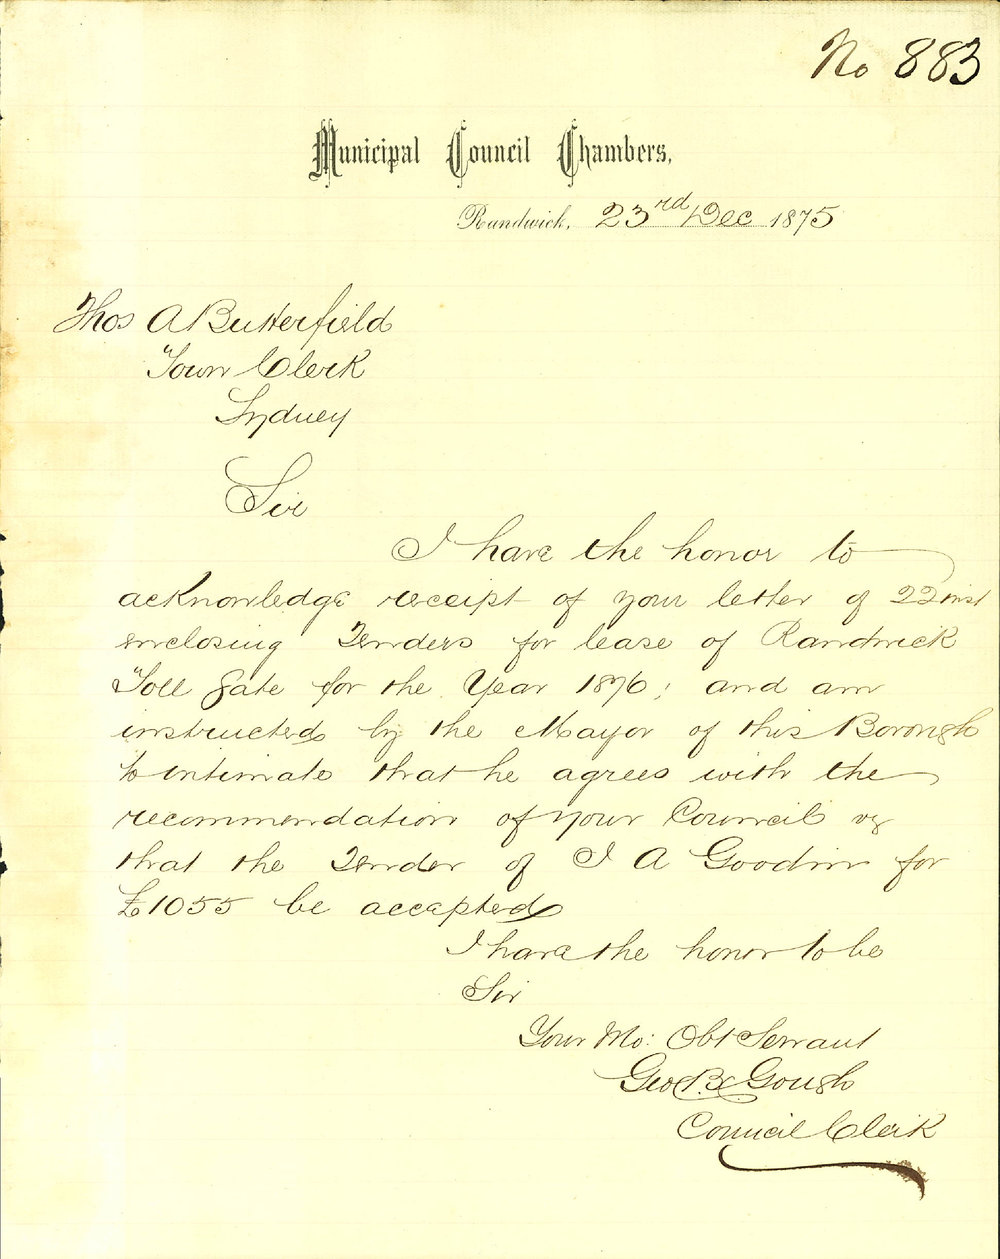 No 883
Municipal Council Chambers,
Randwick, 23rd Dec 1875
Thos A Butterfield
Town Clerk
Sydney
Sir
I have the honor to
acknowledge receipt of your letter of 22 inst
enclosing Tenders for lease of Randwick
Toll Gate for the Year 1876; and am
instructed by the Mayor of this Borough
to intimate that he agrees with the
recommendation of your Council vz
that the Tender of J A Goodin for
£1055 be accepted
I have the honor to be
Sir
Your Mo: Obt Servant
Geo. B. Gough
Council Clerk